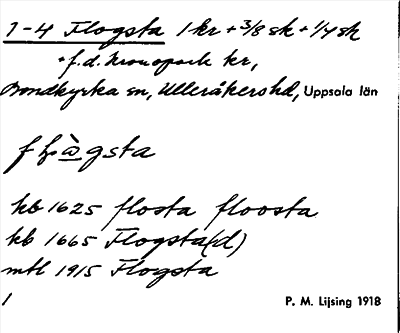 1-4 Flogsta 1 kr + 3/8 sk + 1/4 sk
+ f.d. kronopark kr,
Bondkyrka sn, Ulleråkers hd, Uppsala län
kb 1625 flosta floosta
kb 1665 Flogsta(d)
mtl 1915 Flogsta
1 P. M. Lijsing 1918